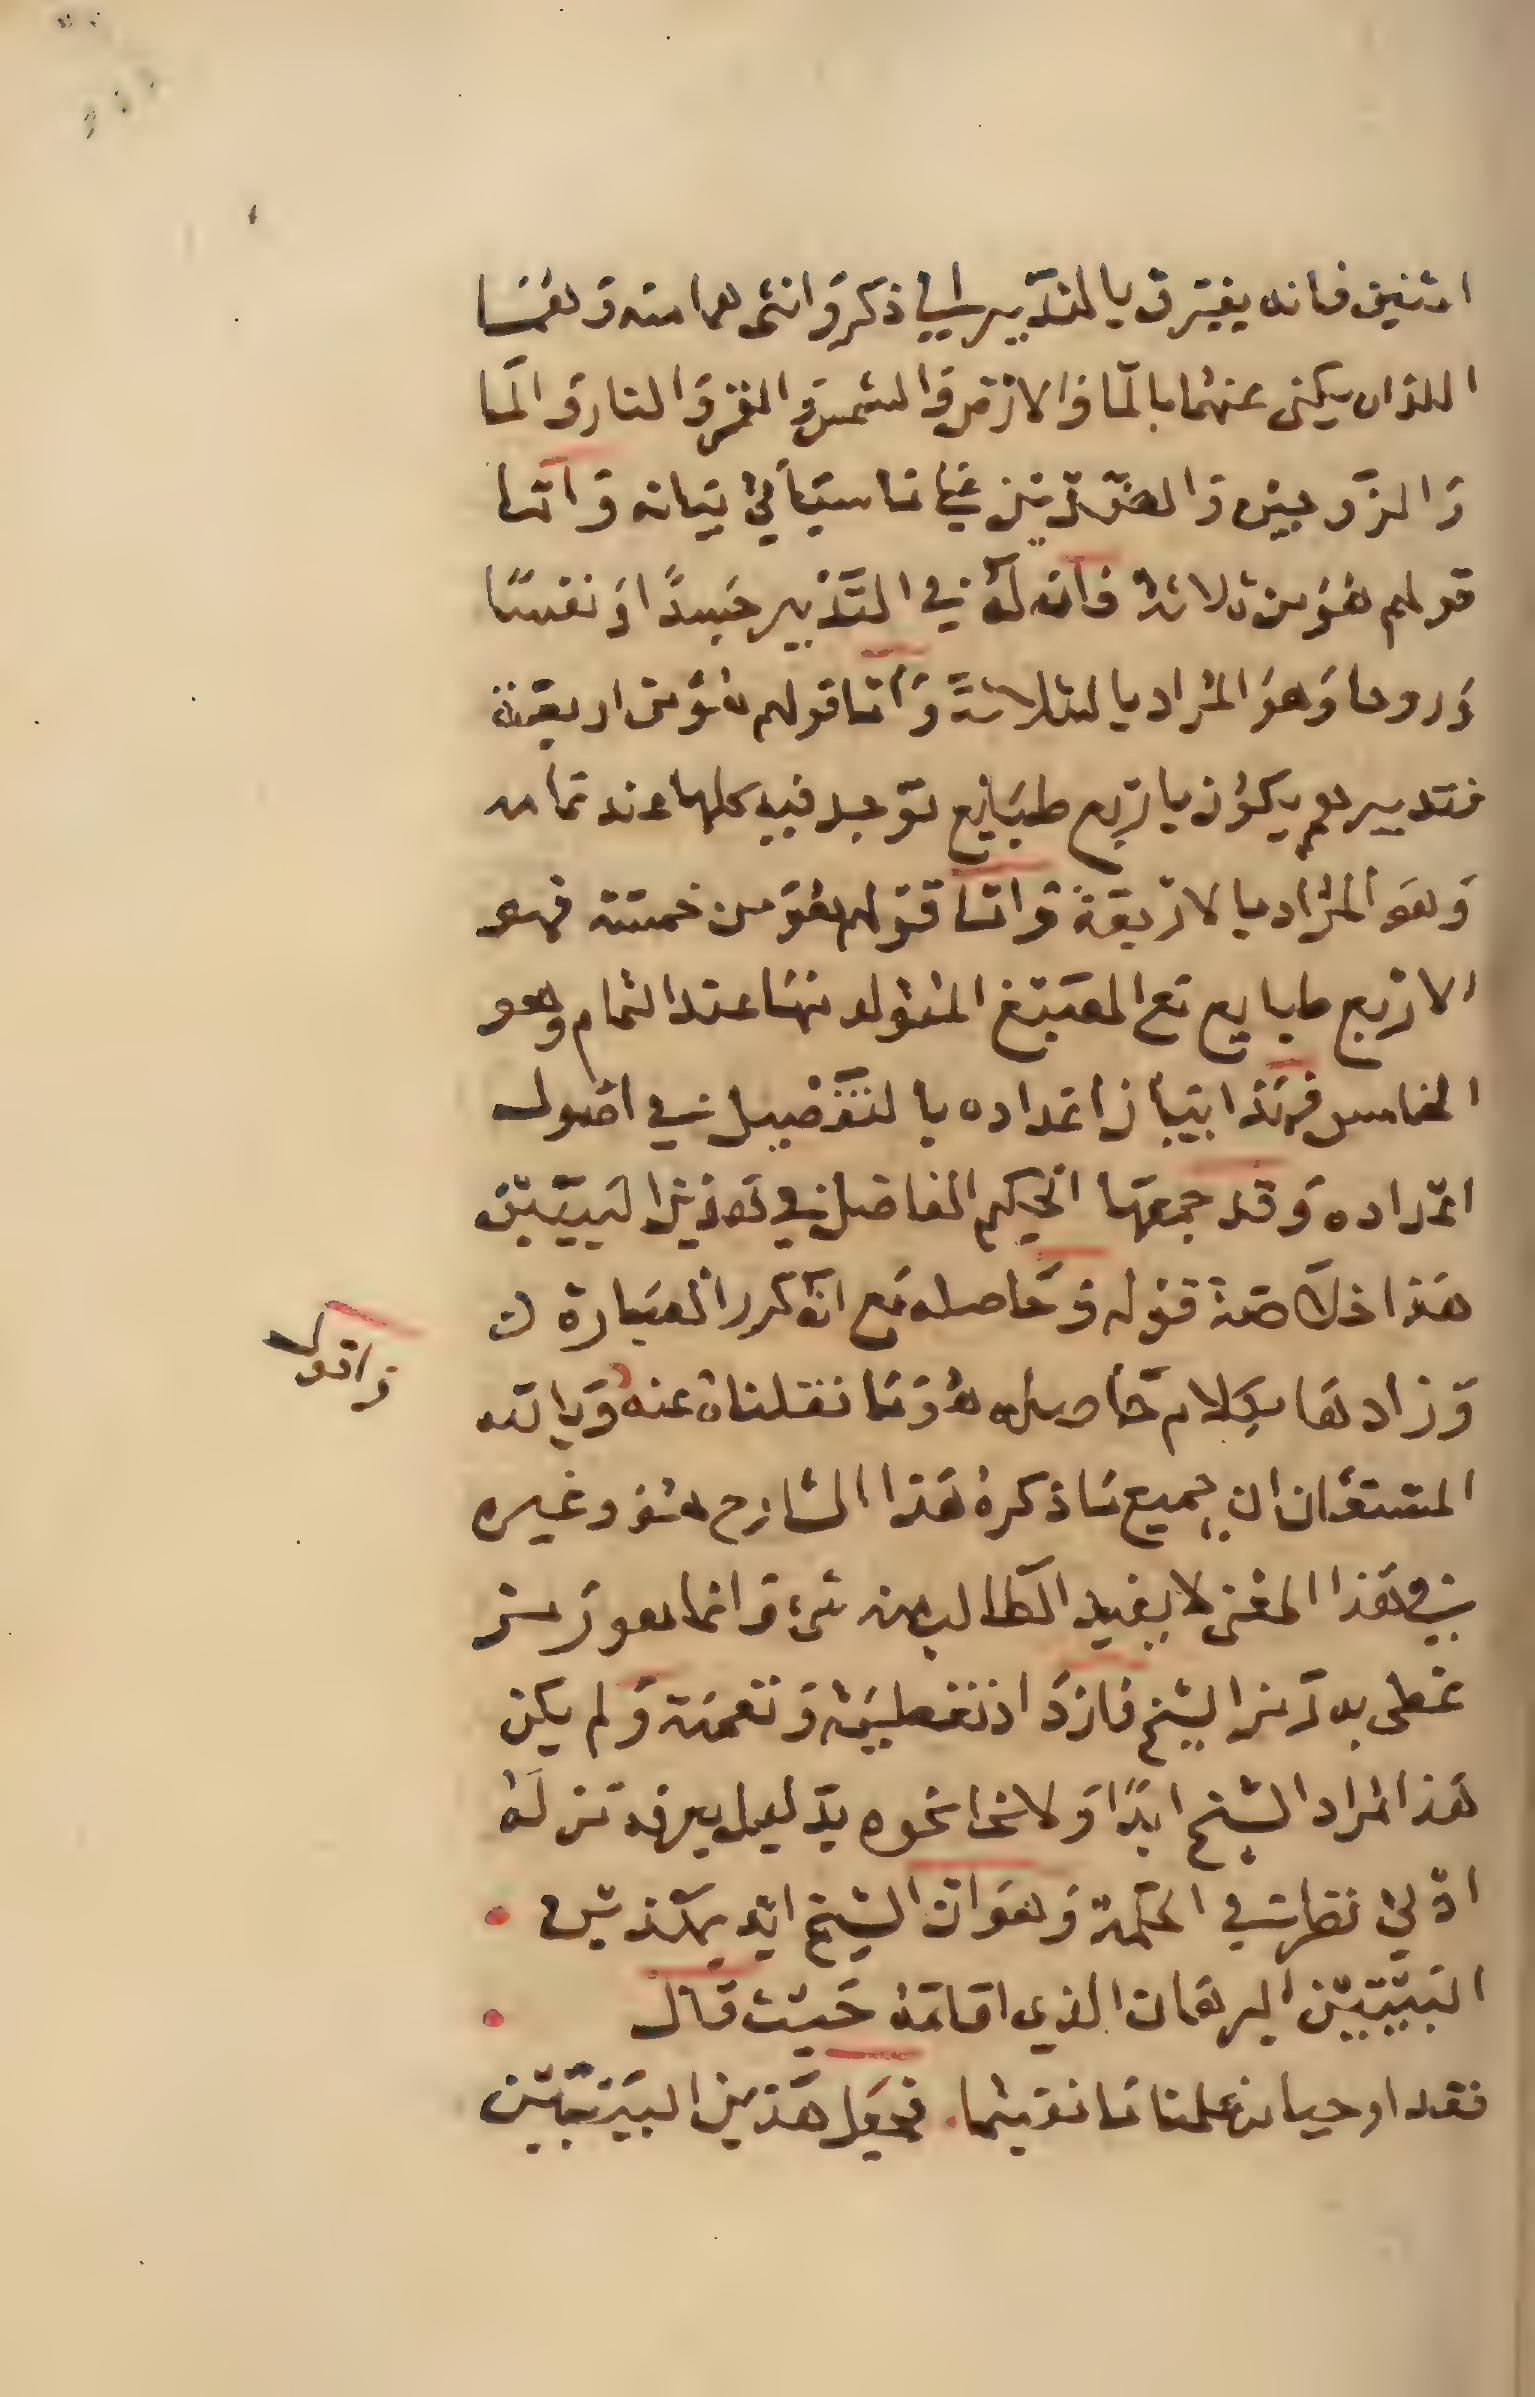 اثنين فانه يفترق بالتدبير الي ذكر وانثى هما منه وهما
اللذان يكنى عنهما بالما والارض والشمس والقمر والنار والما
والزوجين والضدين علي ما سيأتي بيانه وَاما
قولهم هو من ثلاثة فانه له في التدبير جسدًا ونفسًا
وروحا وهو المراد بالثلاثة وَاما قولهم هو من اربعة
فتدبيرهم يكون باربع طبايع توجد فيه كلها عند تمامه
وَهو المراد بالاربعة واما قولهم هو من خمسة فهو
الاربع طبايع مع الصبغ المتولد منها عند التمام وهو
الخامس فهذا بيان اعداده بالتفصيل في اصول
اعداده وَقد جمعها الحكيم الفاضل في هذين البيتين
هذا خلاصة قوله وحاصله مع انه كرر العبارة
وزادها بكلام حاصله هو ما نقلناه عنه وَبالله
المستعان ان جميع ما ذكره هذا الشارح هو وغيره
في هذا المعنى لا يفيد الطالب منه شئ وانما هو رمز
غطى به رمز الشيخ فازداد تغطية وتعمية وَلم يكن
هذا مراد الشيخ ابدًا وَلا نحا نحوه بدليل يعرفه من له
ادنى نظر في الحكمة وَهو ان الشيخ ايد بهذين
البيتين البرهان الذي اقامه حيث قال
فقد اوحيا علمنا فجعل هذين البيتين
واقول